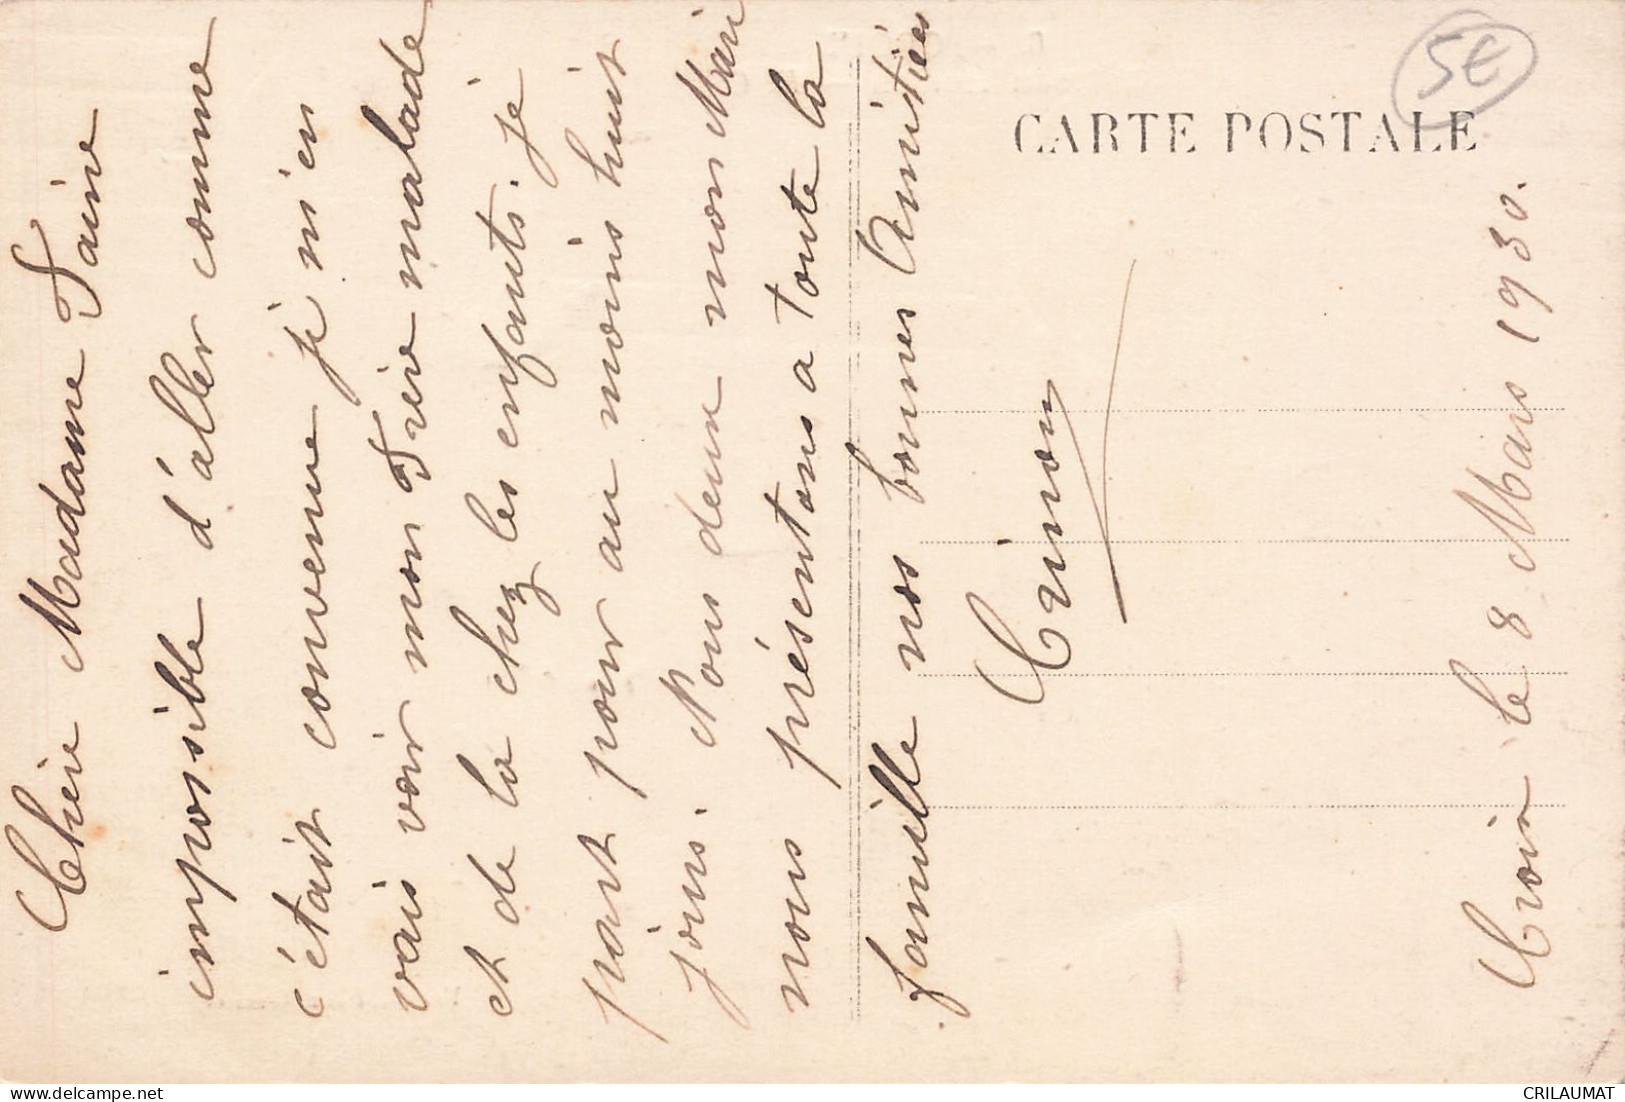 CARTE POSTALE
5€
Chère Madame Taine
impossible d'aller comme
c'était convenue je m'en
vais voir mon Frère malade
et de la chez les enfants. je
part pour au moins huit
jours. Nous deux mon Mari
nous présentons a toute la
famille nos bonnes Amitiées
le 8 Mars 1930.
CRILAUMAT